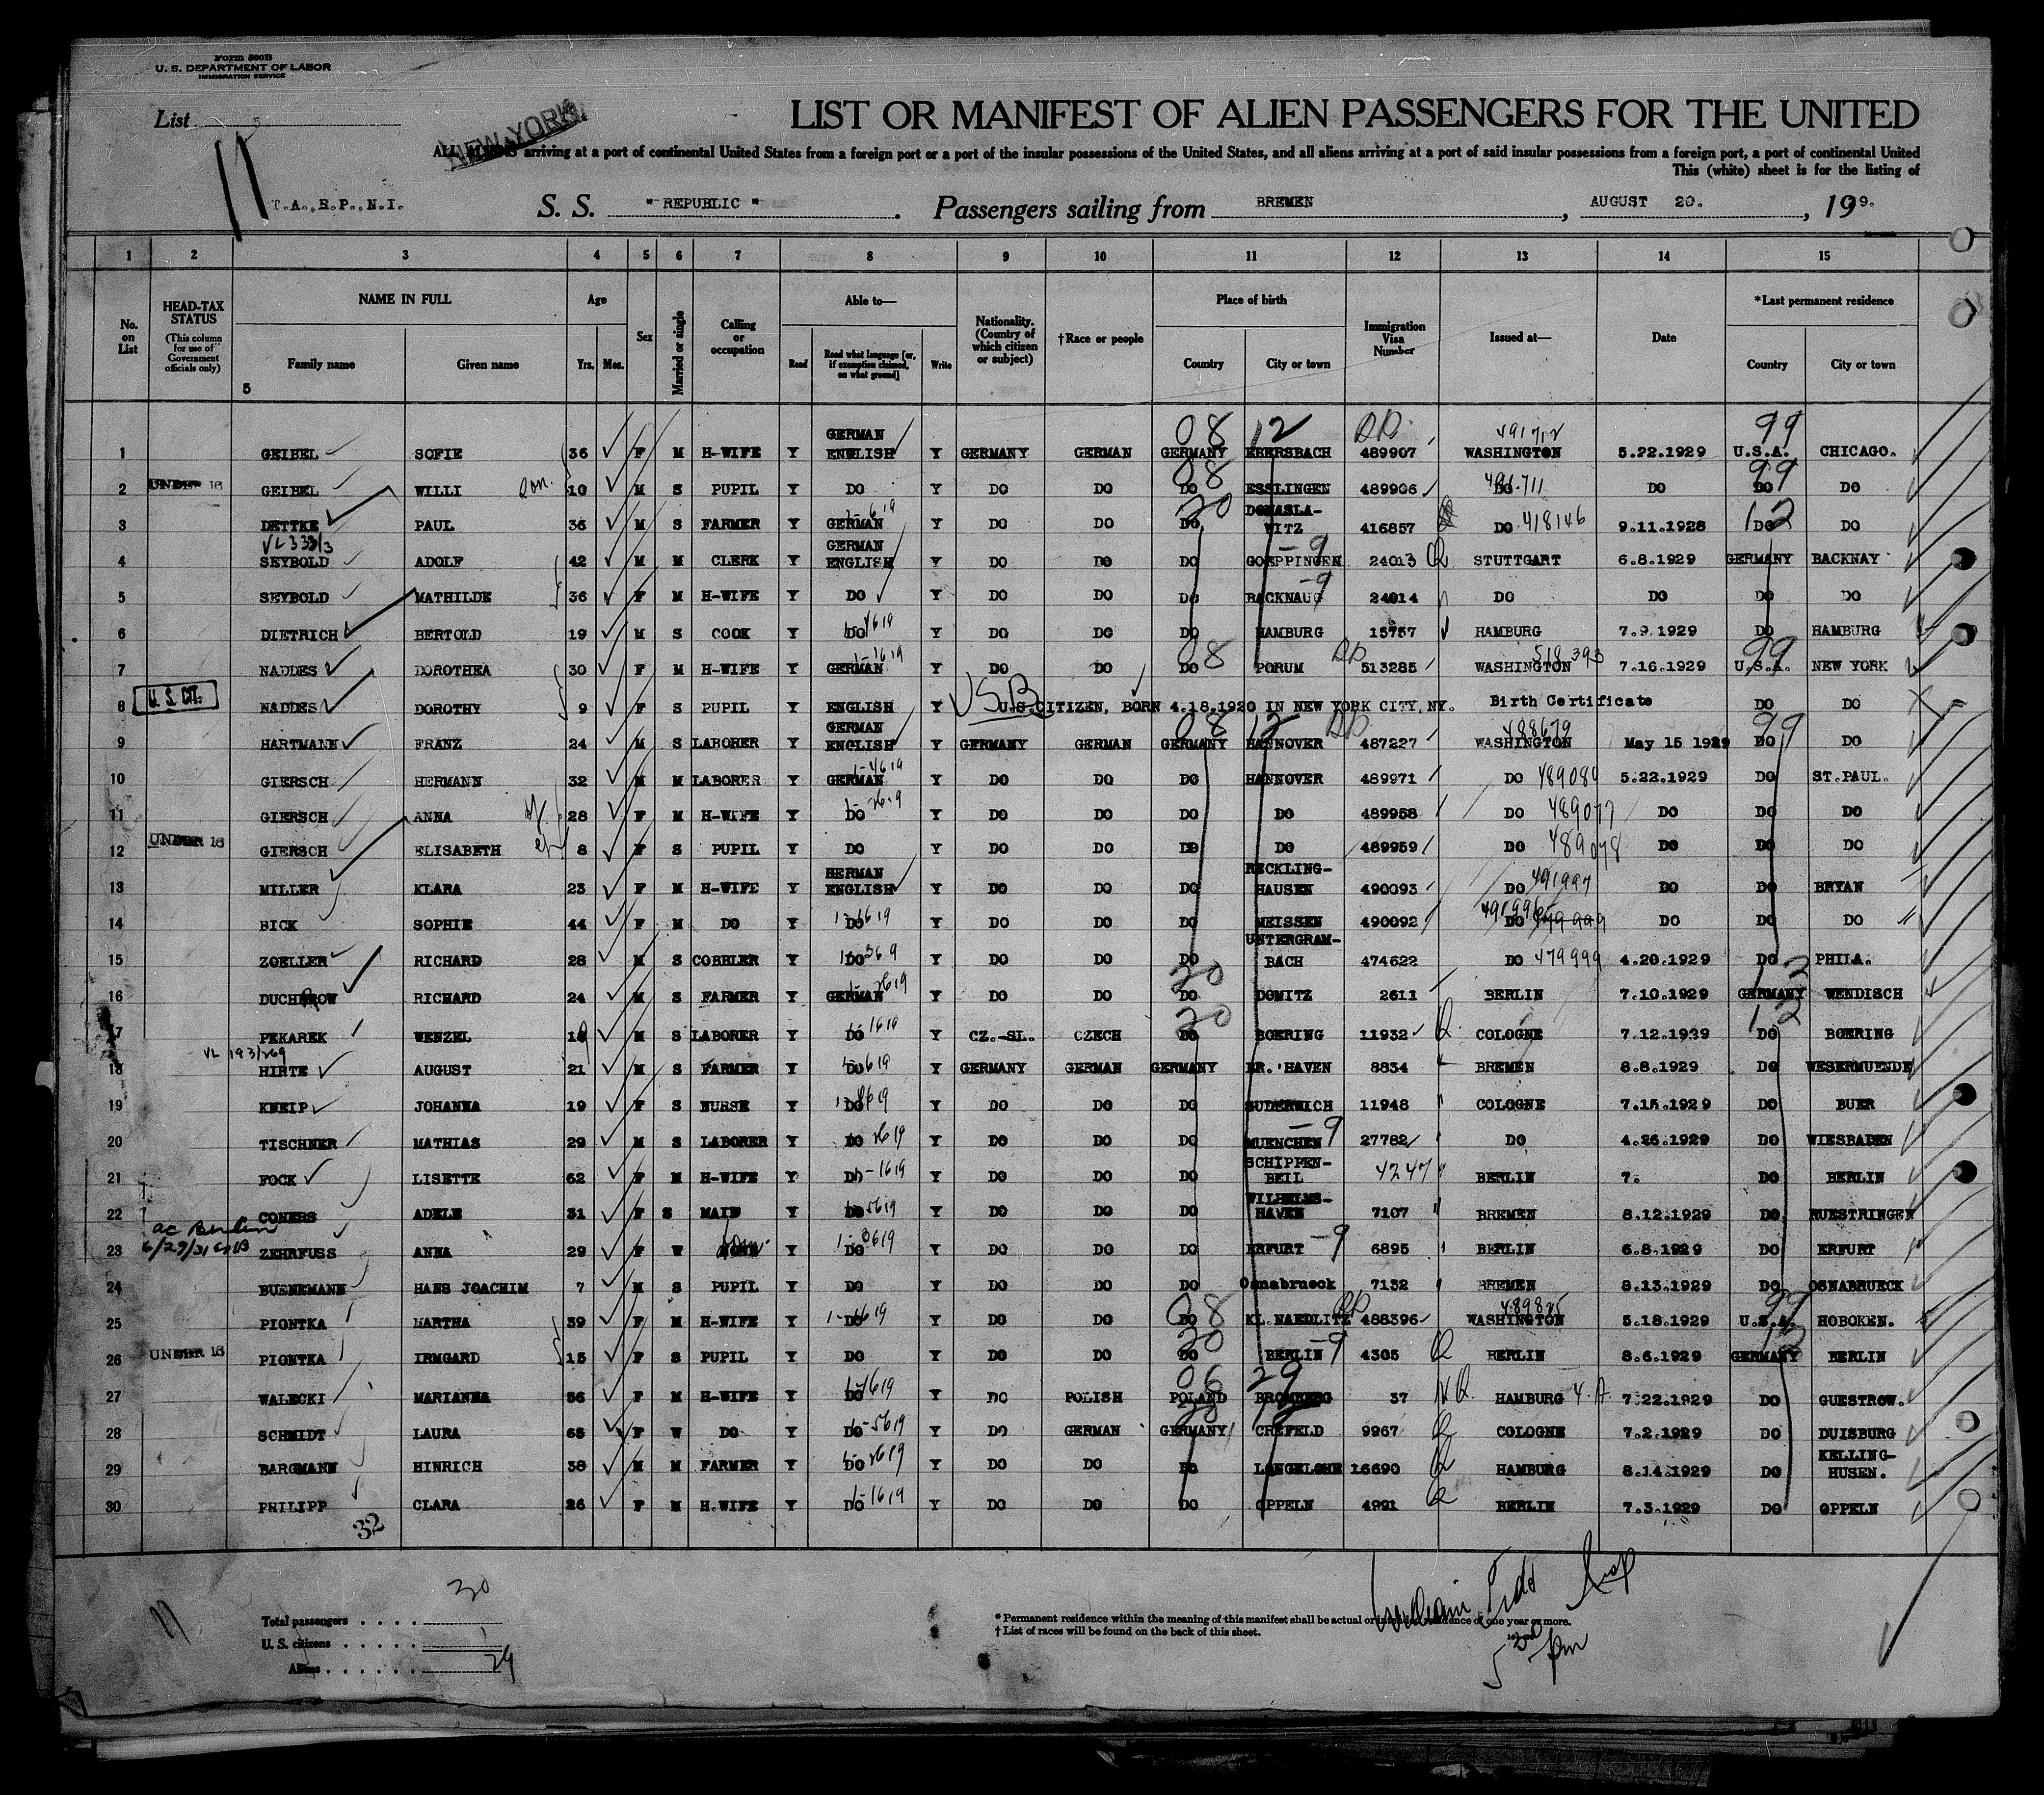 Form 500B
U. S. DEPARTMENT OF LABOR
IMMIGRATION SERVICE
List 5
NEW YORK
LIST OR MANIFEST OF ALIEN PASSENGERS FOR THE UNITED
ALL ALIENS arriving at a port of continental United States from a foreign port or a port of the insular possessions of the United States, and all aliens arriving at a port of said insular possessions from a foreign port, a port of continental United
This (white) sheet is for the listing of
11 T.A.,R.P.,N.I. S. S. " REPUBLIC " . Passengers sailing from BREMEN , AUGUST 20. , 19 29.
1 2 3 4 5 6 7 8 9 10 11 12 13 14 15
No. on List HEAD-TAX STATUS (This column for use of Government officials only) NAME IN FULL Family name Given name Age Yrs. Mos. Sex Married or single Calling or occupation Able to— Read Read what language [or, if exemption claimed, on what ground] Write Nationality. (Country of which citizen or subject) †Race or people Place of birth Country City or town Immigration Visa Number Issued at— Date *Last permanent residence Country City or town
5
08 12 491712 99
1 GEIBEL SOFIE 36 F M H-WIFE Y GERMAN ENGLISH Y GERMANY GERMAN GERMANY EBERSBACH 489907 WASHINGTON 5.22.1929 U.S.A. CHICAGO.
08 99
2 UNDER 16 GEIBEL WILLI son. 10 M S PUPIL Y DO Y DO DO DO ESSLINGEN 489906 DO 491711 DO DO DO
20
3 DETTKE PAUL 36 M S FARMER Y GERMAN Y DO DO DO DOMASLA-WITZ 416857 DO 418146 9.11.1928 DO 12 DO
VL 333/3
4 SEYBOLD ADOLF 42 M M CLERK Y GERMAN ENGLISH Y DO DO DO GOEPPINGEN -9 24013 STUTTGART 6.8.1929 GERMANY BACKNAY
5 SEYBOLD MATHILDE 36 F M H-WIFE Y DO Y DO DO DO BACKNAUG -9 24014 DO DO DO DO
6 DIETRICH BERTOLD 19 M S COOK Y DO Y DO DO DO HAMBURG 15757 HAMBURG 7.9.1929 DO HAMBURG
08 518393 99
7 NADDES DOROTHEA 30 F M H-WIFE Y GERMAN Y DO DO DO PORUM 513285 WASHINGTON 7.16.1929 U.S.A. NEW YORK
8 U. S. CIT. NADDES DOROTHY 9 F S PUPIL Y ENGLISH Y USB U.S.CITIZEN, BORN 4.18.1920 IN NEW YORK CITY, NY. Birth Certificate DO DO
08 12 488679 99
9 HARTMANN FRANZ 24 M S LABORER Y GERMAN ENGLISH Y GERMANY GERMAN GERMANY HANNOVER 487227 WASHINGTON May 15 1929 DO DO
10 GIERSCH HERMANN 32 M M LABORER Y GERMAN Y DO DO DO HANNOVER 489971 DO 489089 5.22.1929 DO ST.PAUL.
11 GIERSCH ANNA 28 F M H-WIFE Y DO Y DO DO DO DO 489958 DO 489077 DO DO DO
12 UNDER 16 GIERSCH ELISABETH 8 F S PUPIL Y DO Y DO DO DO DO 489959 DO 489078 DO DO DO
13 MILLER KLARA 23 F M H-WIFE Y GERMAN ENGLISH Y DO DO DO RECKLING-HAUSEN 490093 DO 491997 DO DO BRYAN
14 BICK SOPHIE 44 F M DO Y DO Y DO DO DO MEISSEN 490092 DO DO DO DO
15 ZOELLER RICHARD 28 M S COBBLER Y DO Y DO DO DO UNTERGRAM-BACH 474622 DO 479999 4.20.1929 DO PHILA.
20 12
16 DUCHROW RICHARD 24 M S FARMER Y GERMAN Y DO DO DO DOMITZ 2611 BERLIN 7.10.1929 GERMANY WENDISCH
20 12
17 PEKAREK WENZEL 18 M S LABORER Y DO Y CZ.-SL. CZECH DO BOERING 11932 COLOGNE 7.12.1939 DO BOERING
VL 193/269
18 HIRTE AUGUST 21 M S FARMER Y DO Y GERMANY GERMAN GERMANY BR.'HAVEN 8834 BREMEN 8.8.1929 DO WESERMUENDE
19 KNEIP JOHANNA 19 F S NURSE Y DO Y DO DO DO SUDERWICH 11948 COLOGNE 7.15.1929 DO BUER
20 TISCHNER MATHIAS 29 M S LABORER Y DO Y DO DO DO MUENCHEN -9 27782 DO 4.26.1929 DO WIESBADEN
21 FOCK LISETTE 62 F M H-WIFE Y DO Y DO DO DO SCHIPPEN-BEIL 4247 BERLIN 7. DO BERLIN
22 CONERS ADELE 31 F S MAID Y DO Y DO DO DO WILHELMS-HAVEN 7107 BREMEN 8.12.1929 DO RUESTRINGEN
ac Berlin 6/29/31
23 ZEHRFUSS ANNA 29 F W Y DO Y DO DO DO ERFURT -9 6895 BERLIN 6.8.1929 DO ERFURT
24 BUENEMANN HANS JOACHIM 7 M S PUPIL Y DO Y DO DO DO Osnabrueck 7132 BREMEN 8.13.1929 DO OSNABRUECK
08 489825 99
25 PIONTKA MARTHA 39 F M H-WIFE Y DO Y DO DO DO KL. NAEDLITZ 488396 WASHINGTON 5.18.1929 U.S.A. HOBOKEN.
20 12
26 UNDER 16 PIONTKA IRMGARD 15 F S PUPIL Y DO Y DO DO DO BERLIN -9 4305 BERLIN 8.6.1929 GERMANY BERLIN
06 29
27 WALECKI MARIANNA 56 F M H-WIFE Y DO Y DO POLISH POLAND BROMBERG 37 HAMBURG 7.22.1929 DO GUESTROW.
20 12
28 SCHMIDT LAURA 65 F W DO Y DO Y DO GERMAN GERMANY CREFELD 9967 COLOGNE 7.2.1929 DO DUISBURG
29 BARGMANN HINRICH 38 M M FARMER Y DO Y DO DO DO LANGELOHE 16690 HAMBURG 8.14.1929 DO KELLING-HUSEN.
30 PHILIPP CLARA 26 F M H.WIFE Y DO Y DO DO DO OPPELN 4991 BERLIN 7.3.1929 DO OPPELN
32
11
Total passengers . . . . 30
U. S. citizens . . . . . 1
Aliens . . . . . . 29
* Permanent residence within the meaning of this manifest shall be actual or intended residence of one year or more.
† List of races will be found on the back of this sheet.